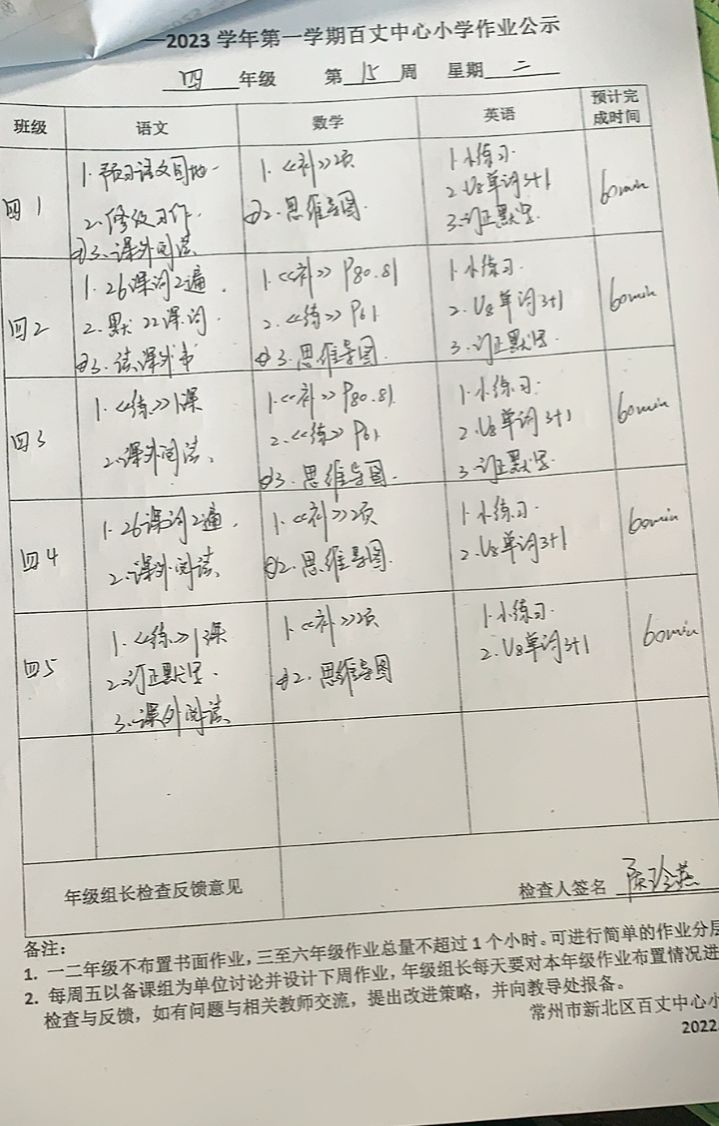 —2023 学年第一学期百丈中心小学作业公示
四 年级 第 15 周 星期 二
班级 语文 数学 英语 预计完成时间
四1
1. 预习语文园地一
2. 修改习作.
3. 课外阅读
1. 《补》2页
2. 思维导图.
1. 小练习.
2. U8单词3+1
3. 订正默写.
60min
四2
1. 26课词2遍.
2. 默22课词.
3. 读课外书
1. 《补》P80.81
2. 《练》P61
3. 思维导图.
1. 小练习.
2. U8单词3+1
3. 订正默写.
60min
四3
1. 《练》1课
2. 课外阅读、
1. 《补》P80.81
2. 《练》P61
3. 思维导图.
1. 小练习.
2. U8单词3+1
3. 订正默写.
60min
四4
1. 26课词2遍.
2. 课外阅读、
1. 《补》2页
2. 思维导图.
1. 小练习.
2. U8单词3+1
60min
四5
1. 《练》1课
2. 订正默写.
3. 课外阅读、
1. 《补》2页
2. 思维导图
1. 小练习.
2. U8单词3+1
60min
年级组长检查反馈意见
检查人签名
备注:
1. 一二年级不布置书面作业，三至六年级作业总量不超过 1 个小时。可进行简单的作业分层
2. 每周五以备课组为单位讨论并设计下周作业，年级组长每天要对本年级作业布置情况进
检查与反馈，如有问题与相关教师交流，提出改进策略，并向教导处报备。
常州市新北区百丈中心小
2022